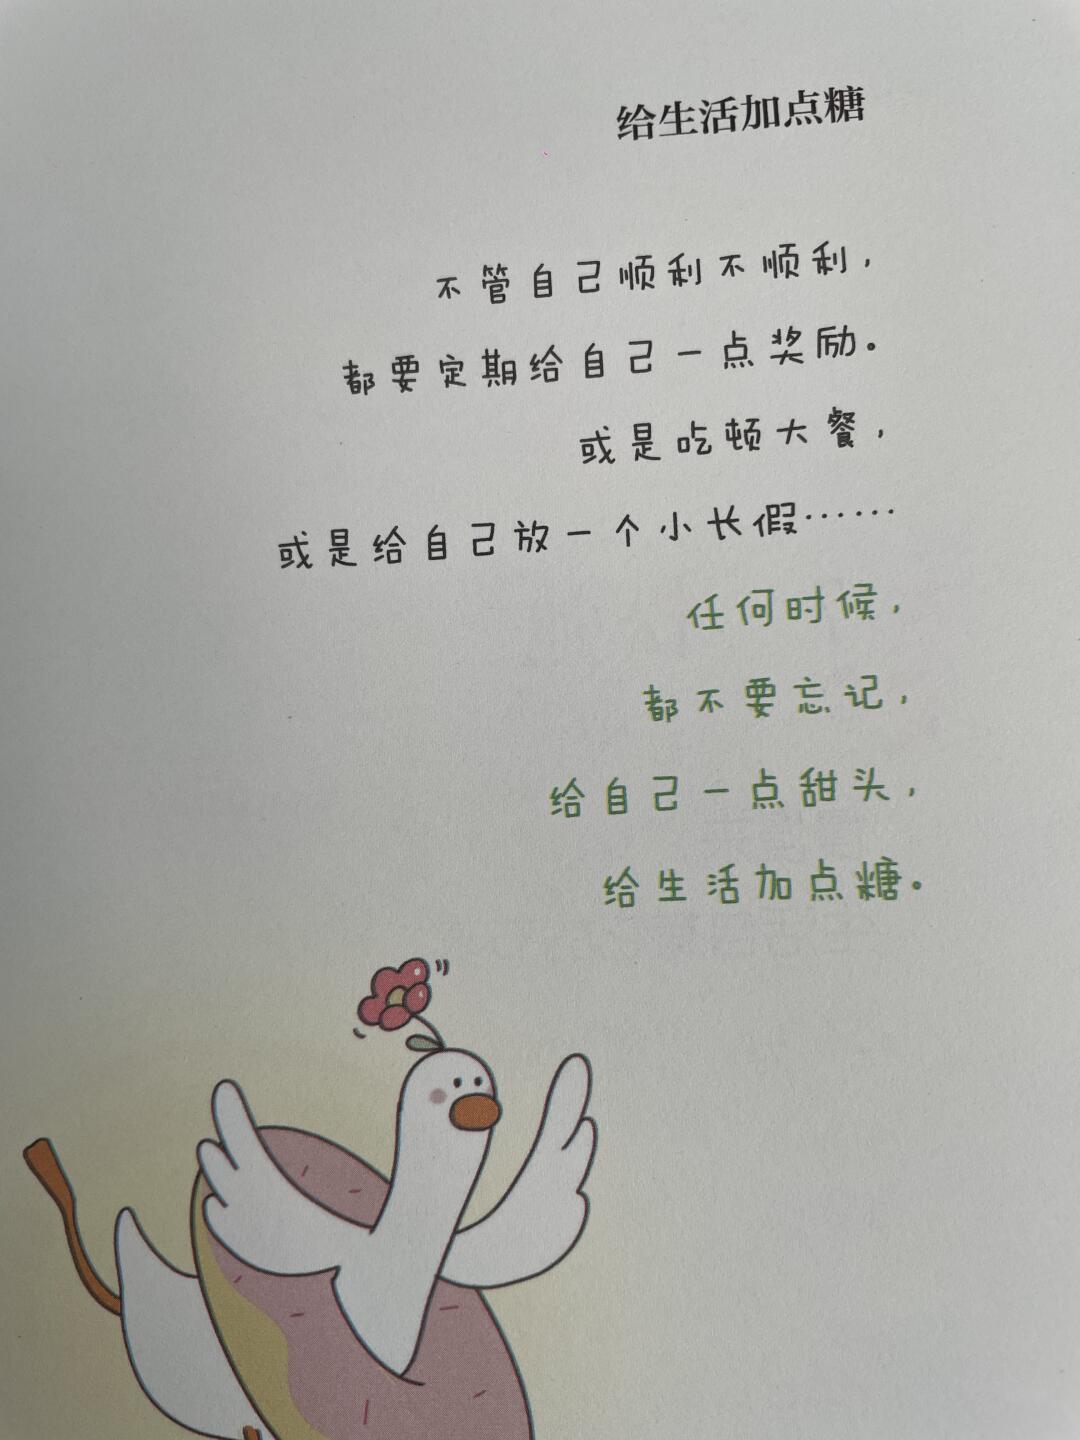 给生活加点糖
不管自己顺利不顺利，
都要定期给自己一点奖励。
或是吃顿大餐，
或是给自己放一个小长假……
任何时候，
都不要忘记，
给自己一点甜头，
给生活加点糖。